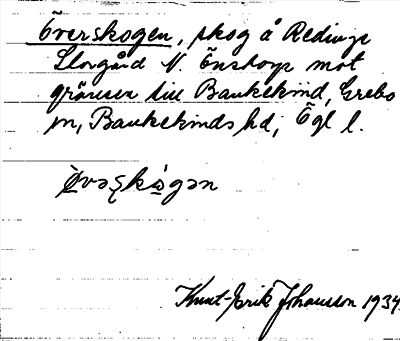 Överskogen, skog å Redinge
Storgård N Önstorp mot
gränsen till Bankekind, Grebo
sn, Bankekinds hd, Ögl l.
Knut-Erik Johansson 1934.